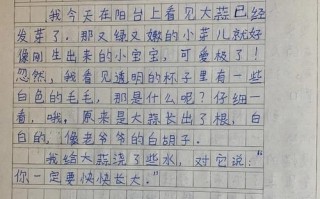 我今天在阳台上看见大蒜已经
发芽了．那又绿又嫩的小芽儿就好
像刚生出来的小宝宝，可爱极了！
忽然，我看见透明的杯子里有一些
白色的毛毛，那是什么呢？仔细一
看，哦，原来是大蒜长出了根，白
白的，像老爷爷的白胡子．
我给大蒜浇了些水，对它说：“
你一定要快快长大．”